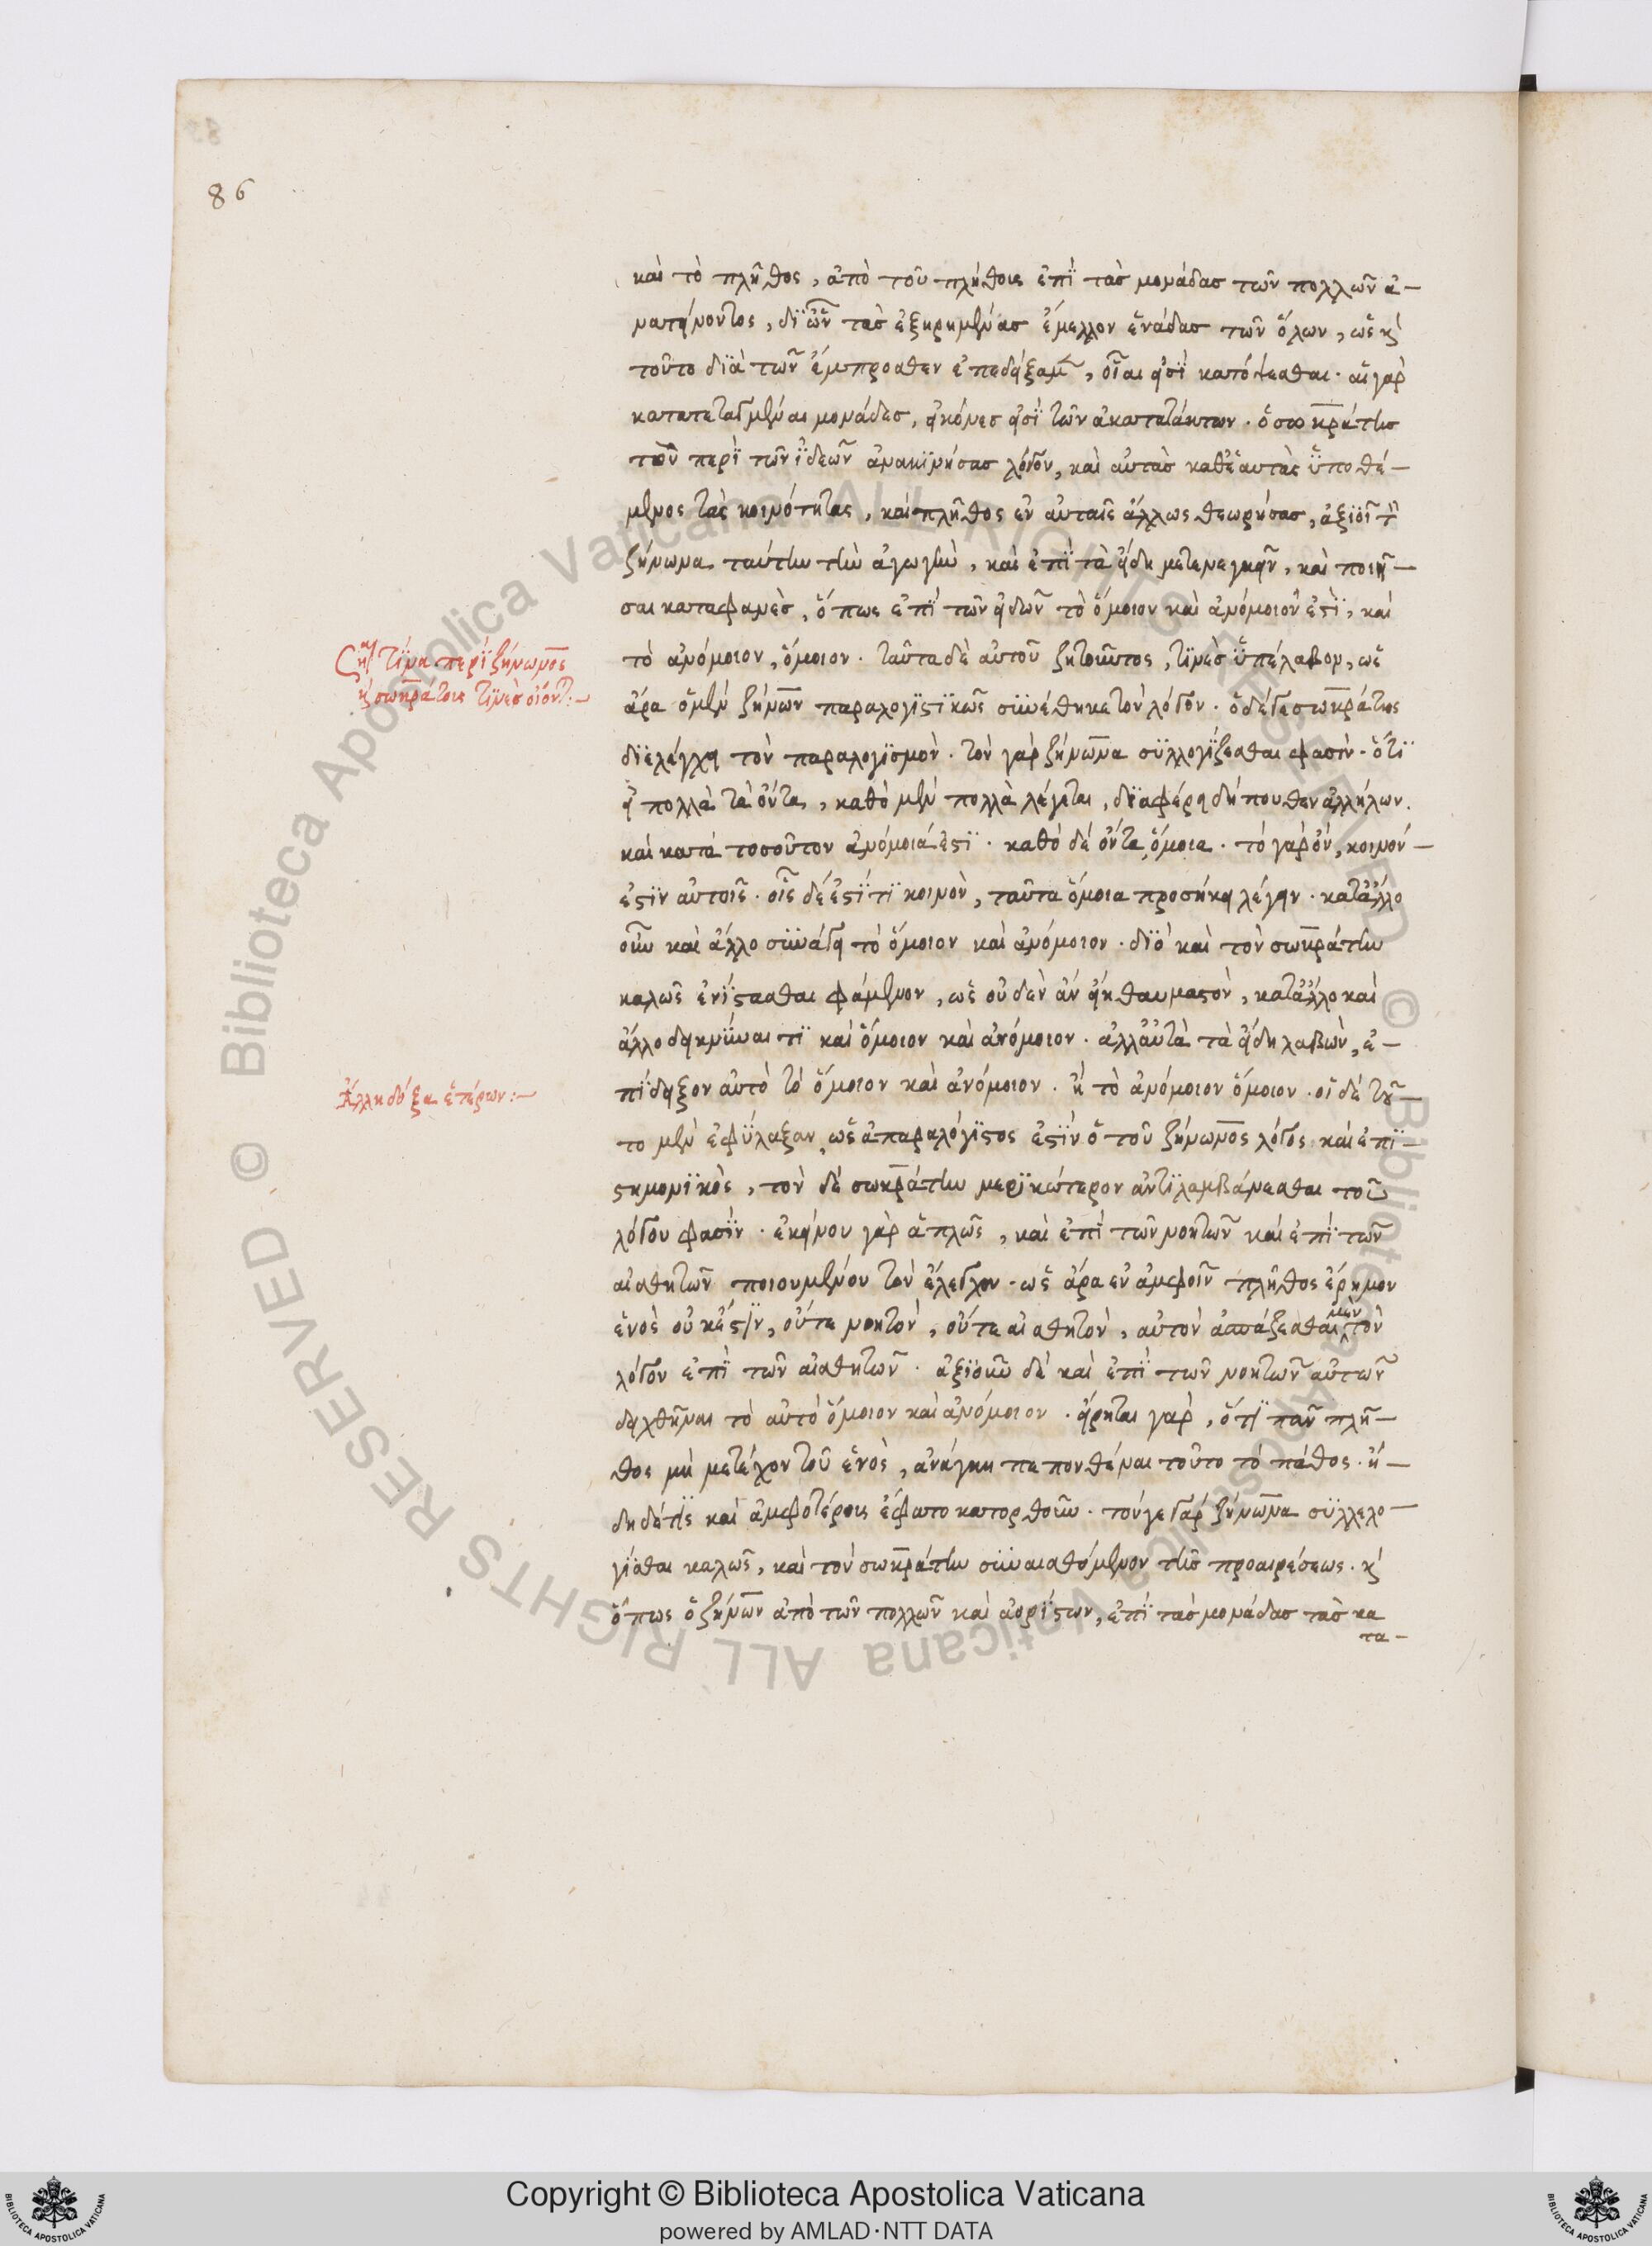 86
καὶ τὸ πλῆθος, ἀπὸ τοῦ πλήθους ἐπὶ τὰς μονάδας τῶν πολλῶν ἀ-
νατείνοντος, δι' ὧν τὰς ἐξῃρημένας ἔμελλον ἑνάδας τῶν ὅλων, ὡς κ(αὶ)
τοῦτο διὰ τῶν ἔμπροσθεν ἐπεδείξαμ(εν), οἷαί εἰσι κατόψεσθαι. αἱ γὰρ
κατατεταγμέναι μονάδες, εἰκόνες εἰσὶ τῶν ἀκατατάκτων. ὁ σωκράτης
τὸν περὶ τῶν ἰδεῶν ἀνακινήσας λόγον, καὶ αὐτὰς καθ' ἑαυτὰς ὑποθέ-
μενος τὰς κοινότητας, καὶ πλῆθος ἐν αὐταῖς ἄλλως θεωρήσας, ἀξιοῖ τὸν
ζήνωνα ταύτην τὴν ἀγωγὴν, καὶ ἐπὶ τὰ εἴδη μετενεγκεῖν, καὶ ποιῆ-
σαι καταφανὲς, ὅπως ἐπὶ τῶν εἰδῶν τὸ ὅμοιον καὶ ἀνόμοιόν ἐστι, καὶ
τὸ ἀνόμοιον, ὅμοιον. ταῦτα δὲ αὐτοῦ ζητοῦντος, τινὲς ὑπέλαβον, ὡς
τίνα περὶ ζήνωνος
κ(αὶ) σωκράτους τινὲς οἴοντ(αι):-
ἄρα ὁ μὲν ζήνων παραλογιστικῶς συνέθηκε τὸν λόγον. ὁ δέ γε σωκράτης
διελέγχει τὸν παραλογισμόν. τὸν γὰρ ζήνωνα συλλογίζεσθαι φασίν. ὅτι
εἰ πολλὰ τὰ ὄντα, καθὸ μὲν πολλὰ λέγεται, διαφέρει δήπουθεν ἀλλήλων.
καὶ κατὰ τοσοῦτον ἀνόμοιά ἐστι. καθὸ δὲ ὄντα, ὅμοια. τὸ γὰρ ὂν, κοινόν-
ἐστιν αὐτοῖς. οἷς δέ ἐστί τι κοινὸν, ταῦτα ὅμοια προσήκει λέγειν. κατ' ἄλλο
οὖν καὶ ἄλλο συνάγει τὸ ὅμοιον καὶ ἀνόμοιον. διὸ καὶ τὸν σωκράτην
καλῶς ἐνίστασθαι φάμενον, ὡς οὐδὲν ἂν εἴη θαυμαστὸν, κατ' ἄλλο καὶ
ἄλλο δεικνύναι τι καὶ ὅμοιον καὶ ἀνόμοιον. ἀλλ' αὐτὰ τὰ εἴδη λαβὼν, ἐ-
πίδειξον αὐτὸ τὸ ὅμοιον καὶ ἀνόμοιον. ἢ τὸ ἀνόμοιον ὅμοιον. οἱ δὲ τοῦ-
Ἄλλη δόξα ἑτέρων:-
το μὲν ἐφύλαξαν, ὡς ἀπαραλόγιστος ἐστὶν ὁ τοῦ ζήνωνος λόγος καὶ ἐπι-
στημονικὸς, τὸν δὲ σωκράτην μερικώτερον ἀντιλαμβάνεσθαι τοῦ
λόγου φασίν. ἐκείνου γὰρ ἁπλῶς, καὶ ἐπὶ τῶν νοητῶν καὶ ἐπὶ τῶν
αἰσθητῶν ποιουμένου τὸν ἔλεγχον. ὡς ἄρα ἐν ἀμφοῖν πλῆθος ἔρημον
ἑνὸς οὐκ ἔστιν, οὔτε νοητὸν, οὔτε αἰσθητὸν, αὐτὸν ἀσπάζεσθαι μὲν τὸν
λόγον ἐπὶ τῶν αἰσθητῶν. ἀξιοῦν δὲ καὶ ἐπὶ τῶν νοητῶν αὐτῶν
δειχθῆναι τὸ αὐτὸ ὅμοιον καὶ ἀνόμοιον. εἴρηται γὰρ, ὅτι πᾶν πλῆ-
θος μὴ μετέχον τοῦ ἑνὸς, ἀνάγκη πεπονθέναι τοῦτο τὸ πάθος. ἤ-
δη δέ τις καὶ ἀμφοτέρους ἔφατο κατορθοῦν. τόν γε γὰρ ζήνωνα συλλελο-
γίσθαι καλῶς, καὶ τὸν σωκράτην συναισθόμενον τῆς προαιρέσεως. κ(αὶ)
ὅπως ὁ ζήνων ἀπὸ τῶν πολλῶν καὶ ἀορίστων, ἐπὶ τὰς μονάδας τὰς κα
τα-
© Biblioteca Apostolica Vaticana ALL RIGHTS RESERVED
Copyright © Biblioteca Apostolica Vaticana
powered by AMLAD·NTT DATA
BIBLIOTECA APOSTOLICA VATICANA
BIBLIOTECA APOSTOLICA VATICANA